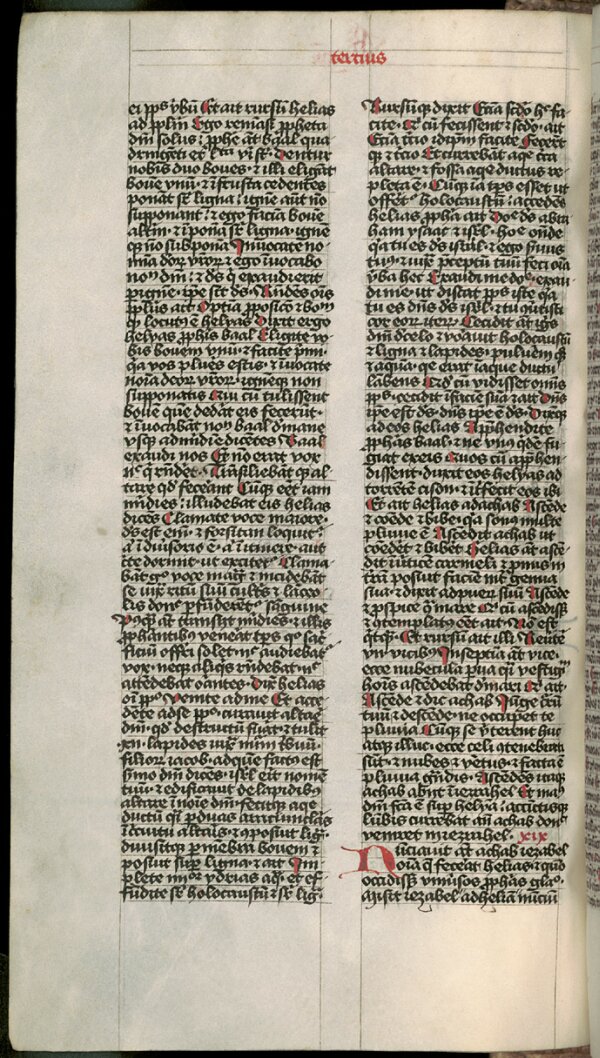 tertius
ei pp̄s v̄bū Et ait rursū helias
ad pp̄lm Ego remāsi ꝓpheta
dn̄i solus · ꝓphe āt baal qua
dringēti et l᷑ta vi st̄ · Dentur
nobis duo boues · ⁊ illi eligāt
boue vnū · ⁊ ī frusta cedentes
ponāt sr̄ ligna · ignē aūt nō
supponant · ⁊ ego faciā boue
altm̄ · ⁊ īponā sr̄ ligna · ignē
qꝫ nō subponā Inuocate no
mīa deor̄ vr̄or̄ ⁊ ego īuocabo
noᷤ dn̄i · ⁊ ds̄ q̄ exaudierit
ꝑ ignē · ip̄e sit ds̄ · Rn̄des oīs
pp̄lus ait · Optīa ꝓpositō ⁊ boᷤ
q̄ locutꝰ ē helyas Dixit ergo
helyas ꝓphis baal Eligite vo
bis bouem vnū · ⁊ facite pm̄i ·
qa vos plures estis · ⁊ īuocate
noīa deor̄ vr̄or̄ · ignēqꝫ non
supponatis Qui cū tulissent
boue quē dedat eis fecerūt ·
⁊ īuocabāt noᷤ baal d̄ mane
vsqꝫ ad mīdiē dicētes Baal
exaudi nos Et nō erat vox
nᶜ q̄ rn̄det · Trāsiliebāt qꝫ al
tare qd̄ feceant Cūqꝫ eēt iam
mīdies · illudebat eis helias
dicēs Clamate voce maiore ·
ds̄ est em̄ · ⁊ forsitan loquit᷑ ·
a᷑ ī diuisorio ē · a᷑ ī itinere · aut
c̄te dormit · ut excitet᷑ Clama
bāt gͦ voce mag᷑ ⁊ incidebāt
se iux̄ ritū suū cult͛s ⁊ lāceo
lis donᶜ ꝑfūderet᷑ saguine
Pꝰqꝫ āt transiit mīdies · ⁊ illis
ꝓphantibꝰ veneāt tp̄s qͦ sac͛
ficiū offeri solet · nᶜ audiebat᷑
vox · neqꝫ aliqs rn̄debat nᶜ
attēdebat oantes · Dix̄ helias
oī pp̄o Venite ad me Et acce
dēte ad se pp̄o · curauit altae
dn̄i · qd̄ destructū fuāt · ⁊ tulit
xii · lapides iux̄ nūm tbuū ·
filior̄ iacob · ad quē factꝰ est
s̄mo dn̄i dicēs · isrl̄ eit nomē
tuū · ⁊ edificauit de lapidibꝰ
altare ī noīe dn̄i · fecitqꝫ aqe
ductū qi ꝑ duas aratiūclās
ī c͛cuitu altaīs · ⁊ ꝯposuit lig᷑
diuisitqꝫ ꝑ mēbra bouem ⁊
posuit sup̄ ligna · ⁊ ait Im
plete iiiiᵒʳ ydrias aq̄ · et ef
fūdite sr̄ holocaustū ⁊ sr̄ lig᷑
Rursūqꝫ dixit Etiā scd̄o hͨ fa
cite · Qͥ cū fecissent ⁊ scd̄o · ait
Etiā t͛cio idip̄m facite Fecert
qꝫ ⁊ t͛cio Et currebāt aqe c͛ca
altare · ⁊ fossa aqe ductus re
pleta ē · Cūqꝫ ia tp̄s esset ut
offeret᷑ holocaustū · accedēs
helias ꝓpha ait Dn̄e ds̄ abra
ham ysaac ⁊ isrl̄ · hoᵉ onde
qa tu es ds̄ isrl̄ · ⁊ ego s̄uus
tuꝰ · ⁊ iux̄ p̄ceptū tuū feci oīa
v̄ba hec Exaudi me dn̄e · exau
di me · ut discat pp̄s iste qa
tu es dn̄s ds̄ isrl̄ · ⁊ tu ꝯuertisti
cor eor̄ iter̄ · Cecidit āt igs̄
dn̄i d̄ celo ⁊ voauit holocaustū
⁊ ligna ⁊ lapides · puluerē qꝫ
⁊ aquā · qe erat ī aque ductu
labens Qd̄ cū vidisset omīs
pp̄s · cecidit ī facie suā ⁊ ait Dn̄s
ip̄e est ds̄ · dn̄s ip̄e ē ds̄ · Dixitqꝫ
ad eos helias Appͬhendite
ꝓphas baal · ⁊ ne vnꝰ qdē fu
giat ex eis Quos cū appͬhen
dissent · duxit eos helyas ad
torrētē cison · ⁊ īt͛fecit eos ibi
Et ait helias ad achab Ascēde
⁊ coēde ⁊ bibe · qa sonꝰ multe
pluuie ē Ascēdit achab ut
coēdet᷑ ⁊ bibet᷑ Helias āt ascē
dit ī v̄tice carmeli ⁊ pͬnus in
t͛rā posuit facie int͛ genua
sua · ⁊ dixit ad pueꝝ suū Ascēde
⁊ ꝓspice ꝯ̄ mare · Qͥ cū ascēdisꝫ
⁊ ꝯtemplatꝰ eēt ait · Nō est
qͥcqꝫ · Et rursū ait illi Reūte͛
vii vicibꝰ In septīa āt vice ·
ecce nubecula pͣua qi vestigiᷤ
hoīs ascēdebat d̄ mari Qͥ ait ·
Ascēde ⁊ dic achab Iūge crū
tuū ⁊ descēde · ne occupet te
pluuia Cūqꝫ se v̄terent huc
atqꝫ illuc · ecce celi ꝯtenebrati
sūt · ⁊ nubes ⁊ vētus · ⁊ facta ē
pluuia g͛ndis · Ascēdēs itaqꝫ
achab abiit ī iezrahel · Et maͫ
dn̄i fc̄a ē sup̄ helyā · accīctisqꝫ
lūbis currebat an̄ achab donᶜ
veniret ī iezrahel · xix
Nūciauit āt achab iezabel
oīa q̄ fecerat helias · ⁊ quō
occidisꝫ vniūsos ꝓphas glaᵒ ·
Misit iezabel ad heliā nūciū